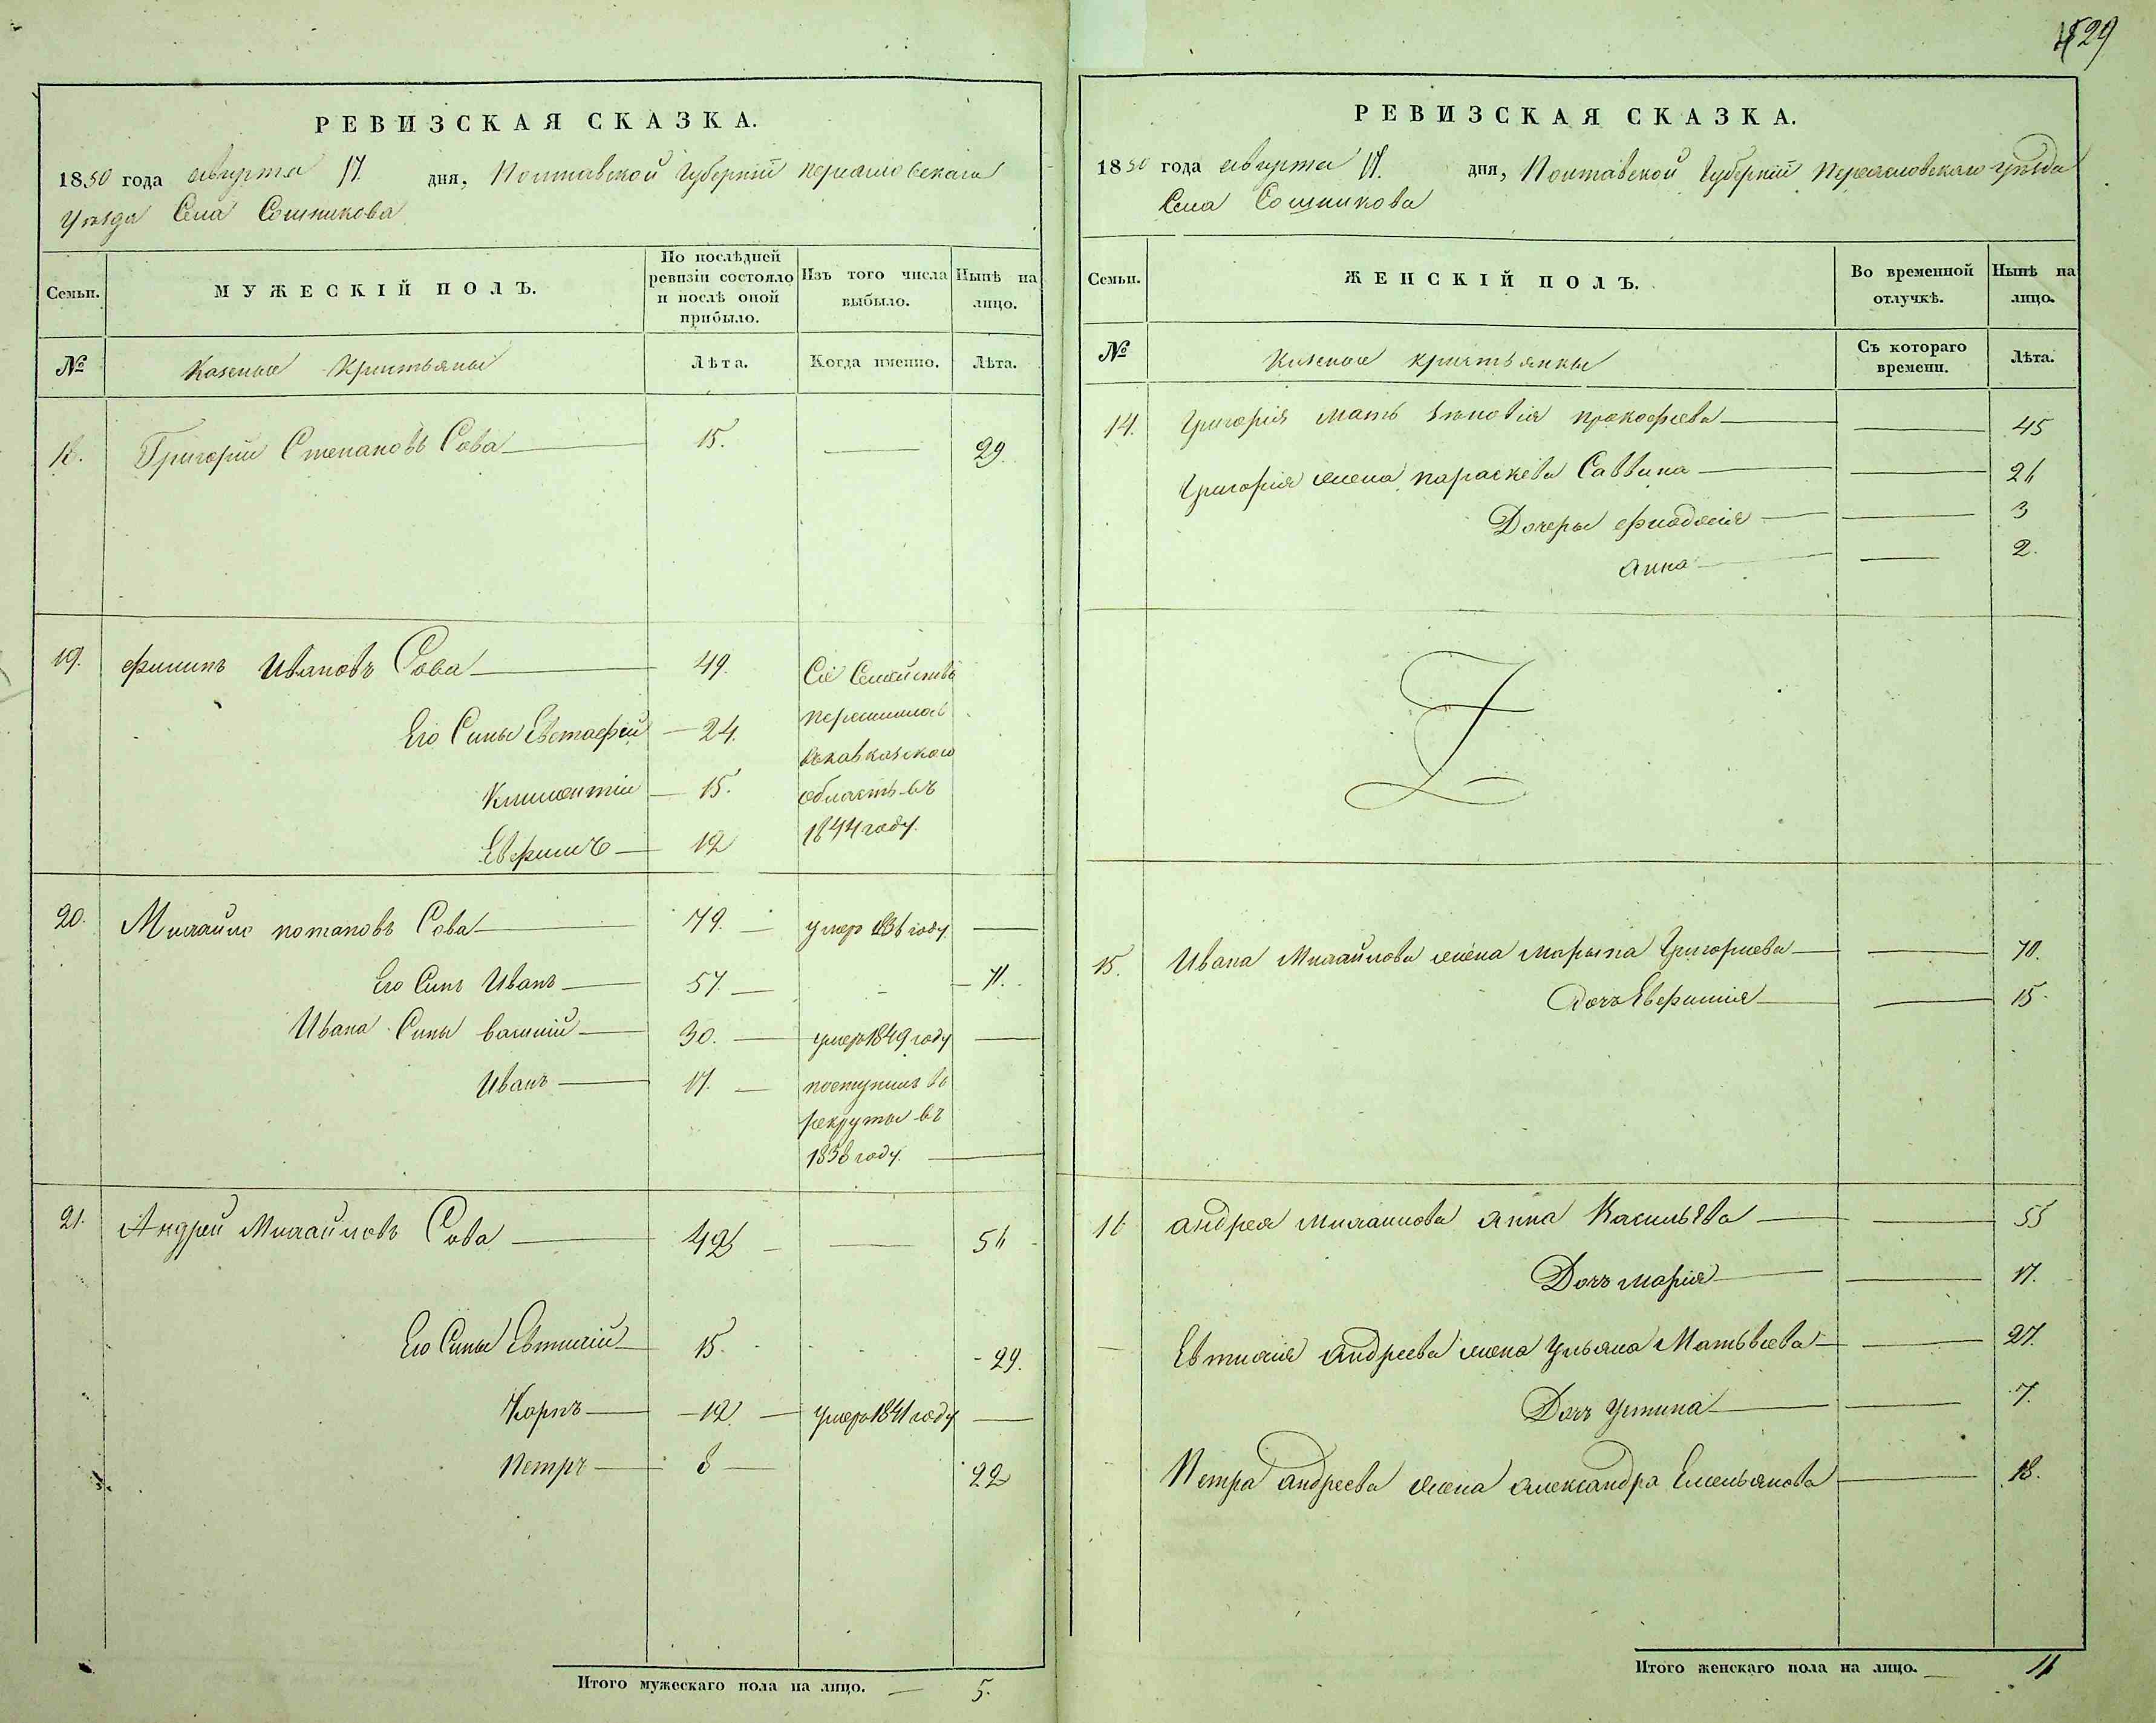 529
РЕВИЗСКАЯ СКАЗКА.
1850 года августа 17. дня, Полтавской Губернии переясловскаго
уезда Села Сошникова
Семьи.
МУЖЕСКІЙ ПОЛЪ.
По послѣдней ревизіи состояло и послѣ оной прибыло.
Изъ того числа выбыло.
Нынѣ на лицо.
№
Казеные Кристьяны
Лѣта.
Когда именно.
Лѣта.
18. Григорій Степановъ Сова 15. 29.
19. филипъ Ивановъ Сова 49. Сіе Семейство
Его Сины Евстафій 24. перешило в
кавказскою
Климентій 15. область въ
1844 году.
Евфимъ 12
20. Михайло потаповъ Сова 79. умер 1836 году.
Его Синъ Иванъ 57. 71.
Ивана Сины василий 30. умер 1849 году
Иванъ 17. поступилъ во
рекруты въ
1838 году.
21. Андрей Михайловъ Сова 42 56
Его Сины Евтихій 15. 29.
Карпъ 12. умер 1841 году
Петръ 8 22
Итого мужескаго пола на лицо. 5.
РЕВИЗСКАЯ СКАЗКА.
1850 года августа 17. дня, Полтавской Губерніи Переясловскаго уѣзда
Села Сошникова
Семьи.
ЖЕНСКІЙ ПОЛЪ.
Во временной отлучкѣ.
Нынѣ на лицо.
№
Казеные кристьянки
Съ котораго времени.
Лѣта.
14. Григорія мать Зѣновія прокофиева 45
Григорія жена параскева Саввина 26
Дочеры фиодосія 3
Анна 2.
15. Ивана Михайлова жена марына Григориева 70.
Дочъ Евфимія 15.
16 андрея михаилова Анна Васильѣва 55
Дочъ марія 17.
Евтихія Андреева жена Ульяна Матьвѣева 27.
Дочъ Устина 7.
Петра андреева жена александра Емельянова 18.
Итого женскаго пола на лицо. 11